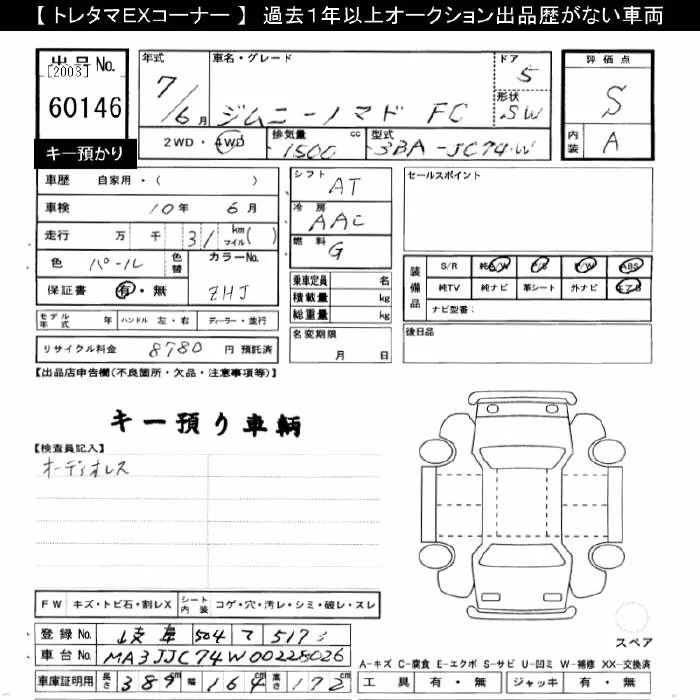 【 トレタマEXコーナー 】 過去1年以上オークション出品歴がない車両
出品No.
[2003]
60146
キー預かり
年式 7/6月
車名・グレード ジムニーノマド FC
ドア 5
形状 SW
評価点 S
内装 A
2WD・4WD
排気量 1500 cc
型式 3BA-JC74W
車歴 自家用・( )
車検 10年 6月
走行 万 千 31 km マイル( )
色 パール 色替
カラーNo. ZHJ
保証書 有・無
モデル年式 年 ハンドル 左・右 ディーラー・並行
リサイクル料金 8780 円 預託済
シフト AT
冷房 AAC
燃料 G
乗車定員 名
積載量 kg
総重量 kg
名変期限 月 日
セールスポイント
装備品
S/R 純A/W P/S P/W ABS
純TV 純ナビ 革シート 外ナビ エアB
ナビ型番:
後日品
【出品店申告欄(不良箇所・欠品・注意事項等)】
キー預り車輌
【検査員記入】
オーディオレス
FW キズ・トビ石・割レX シート内装 コゲ・穴・汚レ・シミ・破レ・スレ
登録No. 岐阜 504 て 5173
車台No. MA3JJC74W00228026
車庫証明用 長さ 389 cm 幅 164 cm 高さ 172 cm
スペア
A-キズ C-腐食 E-エクボ S-サビ U-凹ミ W-補修 XX-交換済
工具 有・無 ジャッキ 有・無